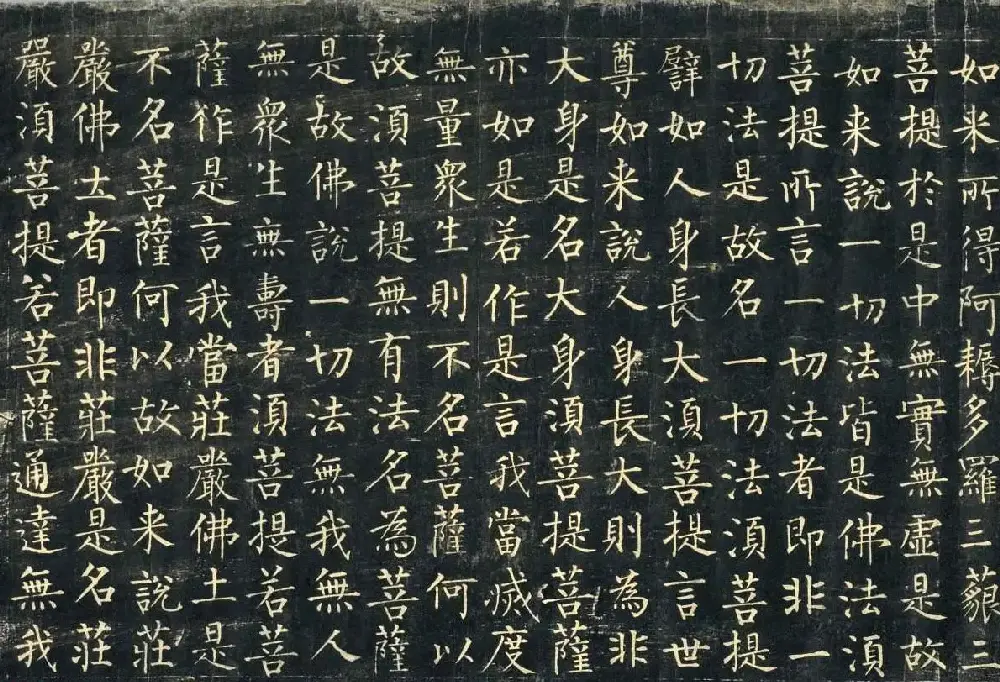 如来所得阿耨多羅三藐三
菩提於是中無實無虛是故
如来說一切法皆是佛法湏
菩提所言一切法者即非一
切法是故名一切法湏菩提
譬如人身長大湏菩提言世
尊如来說人身長大則為非
大身是名大身湏菩提菩薩
亦如是若作是言我當滅度
無量眾生則不名菩薩何以
故湏菩提無有法名為菩薩
是故佛說一切法無我無人
無眾生無壽者湏菩提若菩
薩作是言我當莊嚴佛土是
不名菩薩何以故如来說莊
嚴佛土者即非莊嚴是名莊
嚴湏菩提若菩薩通達無我